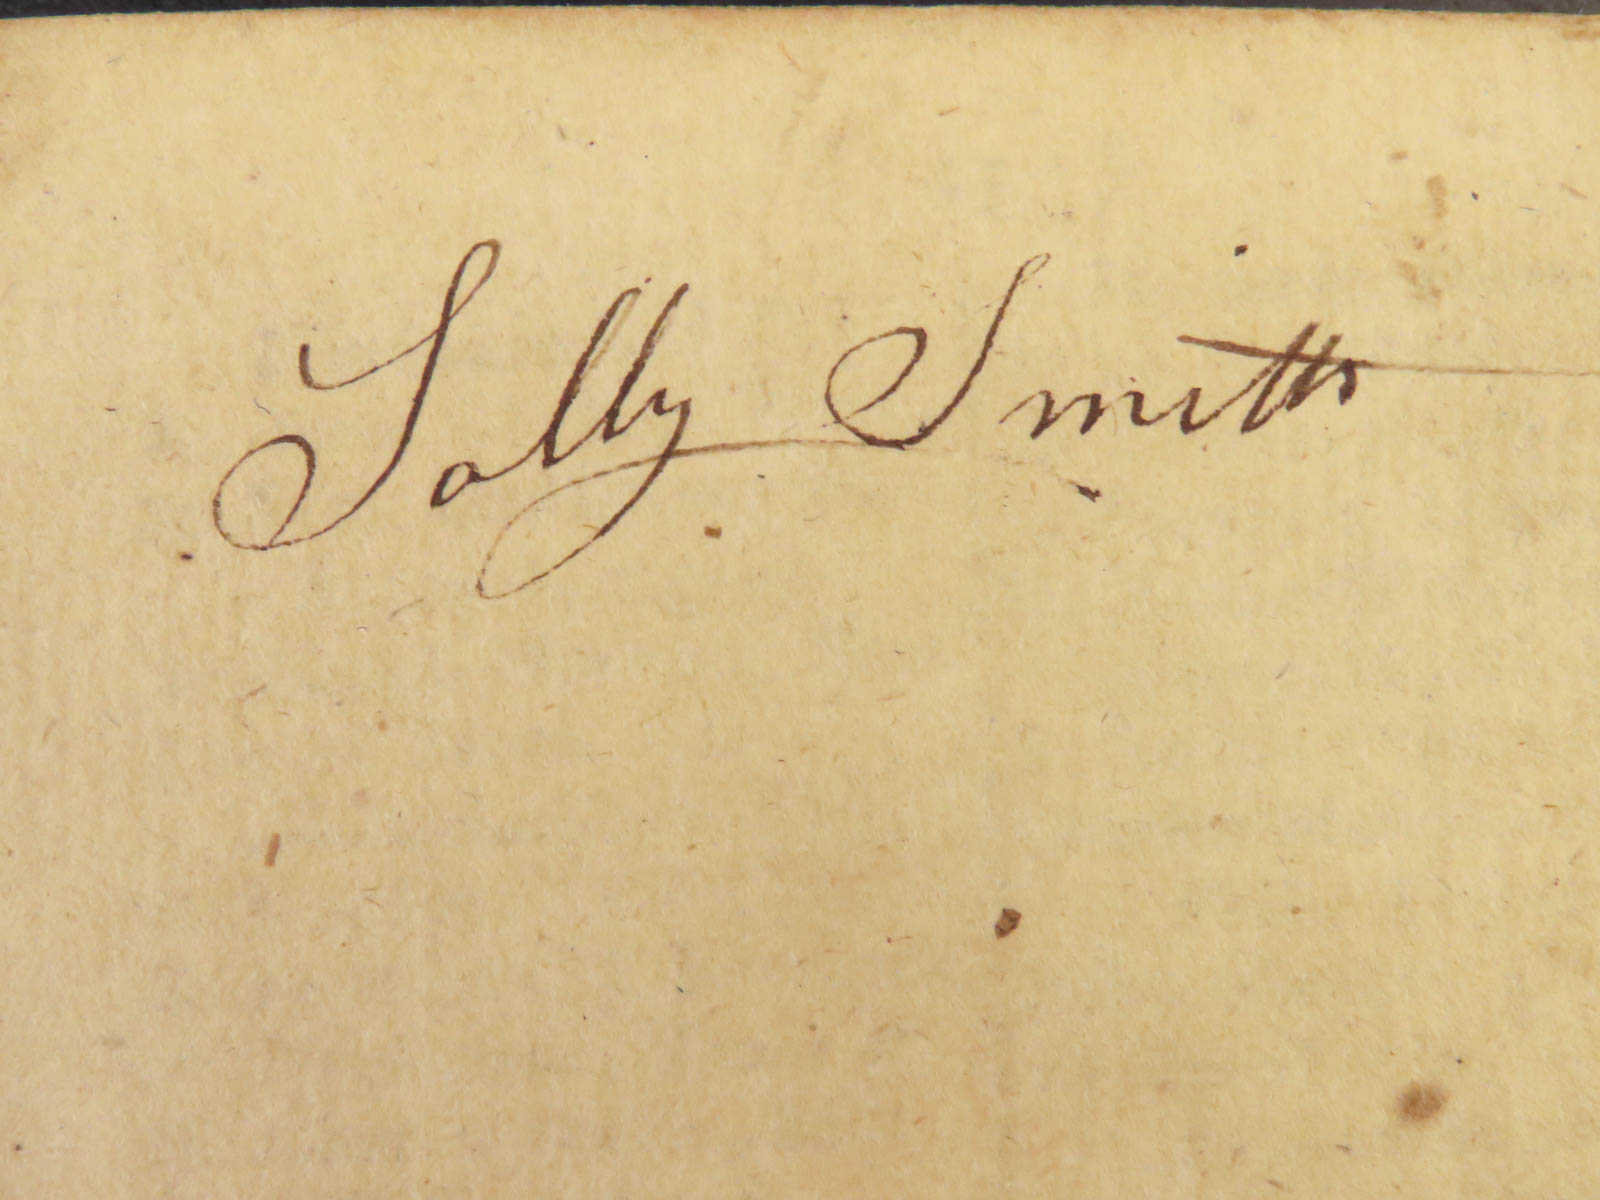 Sally Smith